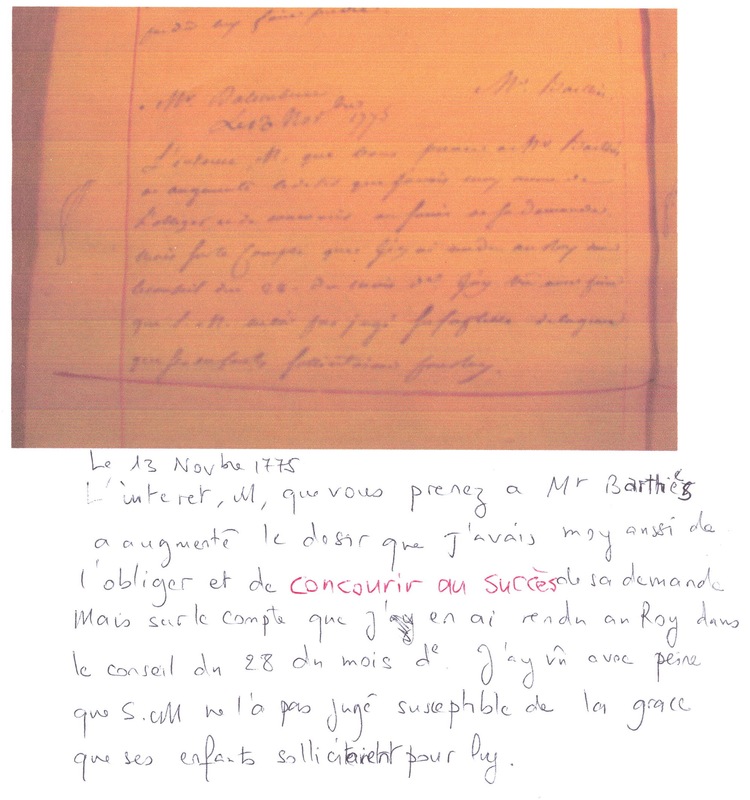 Mr
Le 13 Nov bre 1775
L'interet M, que vous prenez a Mr Barthiès
a augmenté le desir que j'avais moy aussi de
l'obliger et de concourir au succès de sa demande
Mais sur le Compte que j'ay rendu au Roy
le conseil du 28 du mois der J'ay vû avec peine
que S. M. pas jugé susceptible de la grace
que ses enfants sollicitaient pour luy.
Le 13 Novbre 1775
L'interet, M, que vous prenez a Mr Barthiès
a augmenté le desir que j'avais moy aussi de
l'obliger et de concourir au succès de sa demande
Mais sur le compte que j' en ai rendu au Roy dans
le conseil du 28 du mois de J'ay vû avec peine
que S.M ne l'a pas jugé susceptible de la grace
que ses enfants sollicitaient pour luy.